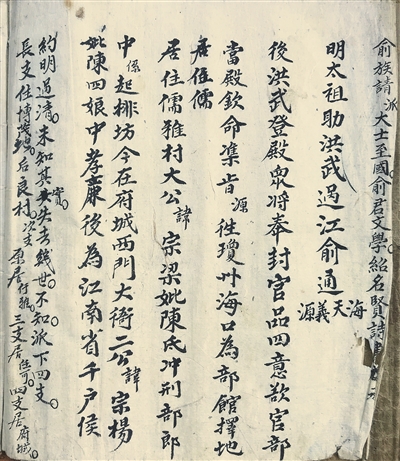 俞族請派大士至國俞君文學紹名賢詩
明太祖助洪武過江俞通海天義源
後洪武登殿眾將奉封官品四意欲官部
當殿欽命準旨源徃瓊州海口為部館擇地
居住儒
居住儒雅村大公諱宗梁妣陳氏冲刑部郎
中係起排坊今在府城西門大街二公諱宗楊
妣陳四娘中孝廉後為江南省千戶侯
約明過清未知其實失去幾世不知派下四支
長支住博茂後良村次支原居儒雅三支居 四支居府城